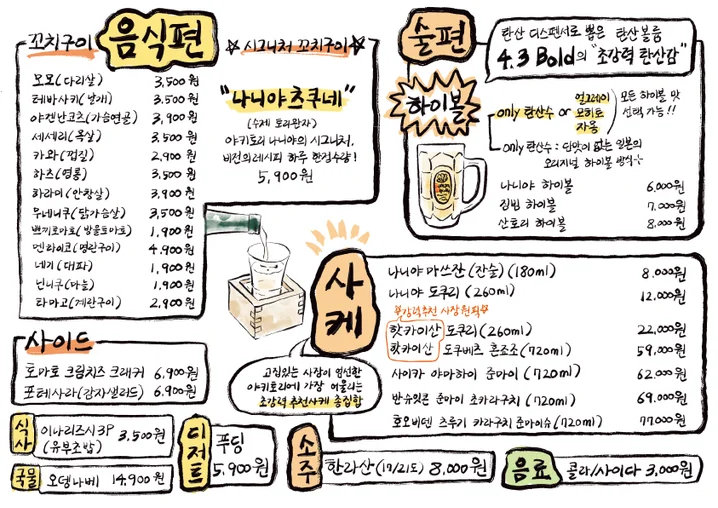 꼬치구이
음식편
모모(다리살) 3,500원
테바사키(날개) 3,500원
야겐난코츠(가슴연골) 3,900원
세세리(목살) 3,500원
카와(껍질) 2,900원
하츠(염통) 3,500원
하라미(안창살) 3,900원
무네니쿠(닭가슴살) 3,500원
쁘띠토마토(방울토마토) 1,900원
멘타이코(명란구이) 4,900원
네기(대파) 1,900원
닌니쿠(마늘) 1,900원
타마고(계란구이) 2,900원
☆시그니처 꼬치구이☆
"나니야츠쿠네"
(수제 토리완자)
야키토리 나니야의 시그니처,
비전의레시피 하루 한정수량!
5,900원
술편
탄산 디스펜서로 뽑은 탄산볼륨
4.3 Bold의 "초강력 탄산감"
하이볼
only 탄산수 or
얼그레이
모히또
자몽
모든 하이볼 맛
선택 가능!!
only 탄산수 : 단맛이 없는 일본의
오리지널 하이볼 방식
나니야 하이볼 6,000원
짐빔 하이볼 7,000원
산토리 하이볼 8,000원
사케
고집있는 사장이 엄선한
야키토리에 가장 어울리는
초강력 추천사케 총집합
나니야 마쓰잔(잔술)(180ml) 8,000원
나니야 도쿠리(260ml) 12,000원
☆강력추천 사장원픽☆
핫카이산 도쿠리(260ml) 22,000원
핫카이산 도쿠베츠 혼죠조(720ml) 59,000원
사이카 야마하이 준마이(720ml) 62,000원
반슈잇콘 준마이 초카라구치(720ml) 69,000원
호오비덴 츠루기 카라구치 준마이슈(720ml) 77,000원
사이드
토마토 크림치즈 크래커 6,900원
포테사라(감자샐러드) 6,900원
식사
이나리즈시3P
(유부초밥)
3,500원
국물
오뎅나베 14,900원
디저트
푸딩
5,900원
소주
한라산(17/21도) 8,000원
음료
콜라/사이다 3,000원